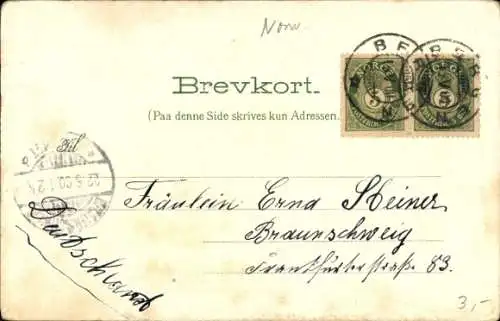 Norw.
BERGEN
NORGE NORGE
5 5
Brevkort.
(Paa denne Side skrives kun Adressen.)
Til
Fräulein Erna Steiner
Braunschweig
Frankfurterstraße 83.
Deutschland
3,-